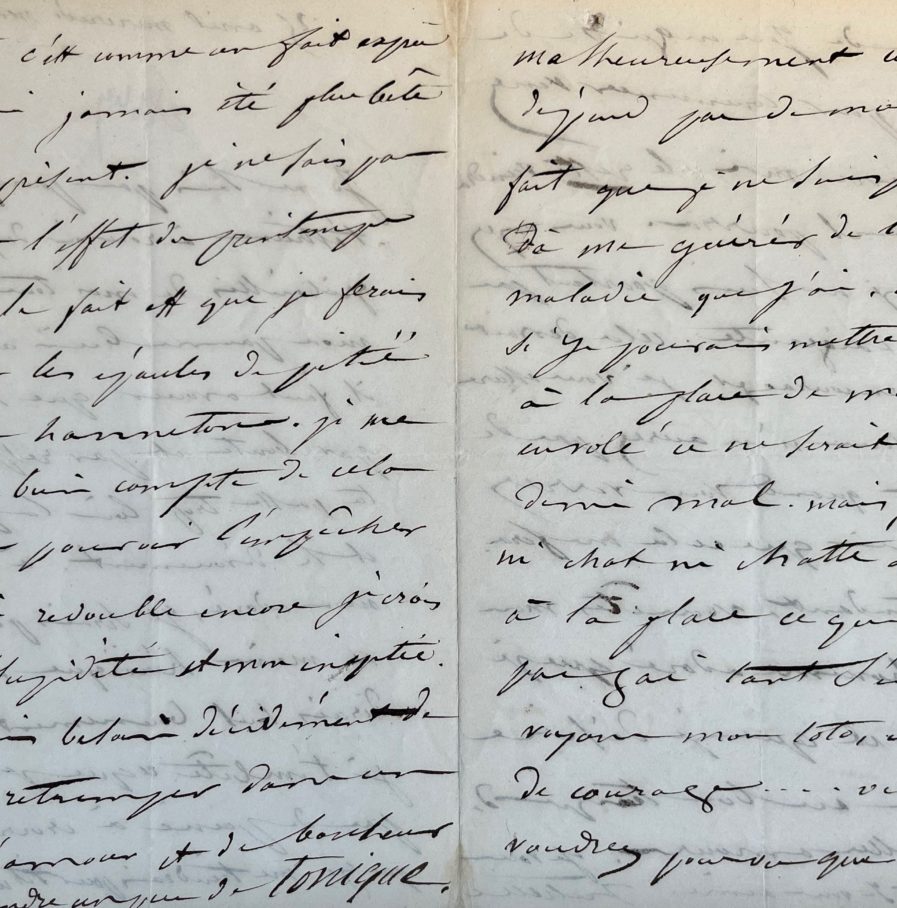 c'est comme un fait exprès
jamais été plus bête
présent. je ne sais pas
l'effet du printemps
le fait est que je ferais
les épaules de pitié
hanneton. je me
bien compte de cela
pouvoir l'empêcher
redouble encore je crois
stupidité et mon ineptie.
besoin décidément de
retremper dans un
d'amour et de bonheur
un peu de tonique.
malheureusement
dépend pas de moi
fait que je ne suis
à me guérir de l
maladie que j'ai.
si je pouvais mettre
à la place de m
envolé ce ne serait
demi mal. mais
ni chat ni chatte
à la place ce qu
pas gai tant s'e
voyons mon toto,
de courage ....
voudrez pourvu que